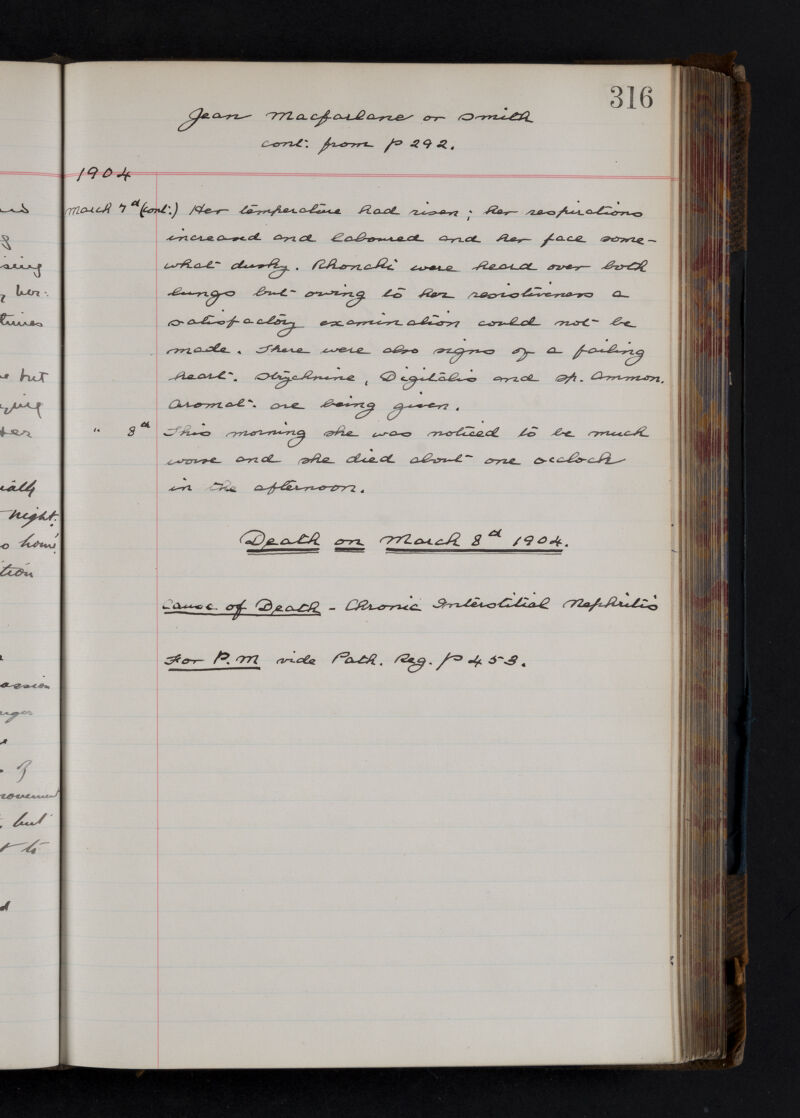 316
Jean Macfarlane or Smith
cont: from p 292.
1904
March 7th (cont:) Her temperature had risen; her respirations
increased and laboured and her face some-
what dusky. Rhonchi were heard over both
lungs but owing to her resistiveness a
satisfactory examination could not be
made. There were also signs of a failing
heart. Strychnine, Digitalis and Sp. Ammon.
Aromat. are being given.
" 8th This morning she was noticed to be much
worse and she died about one oclock
in the afternoon.
Death on March 8th 1904.
Cause of Death - Chronic Interstitial Nephritis
For P.M vide Path. Reg. p 453.
night.
but